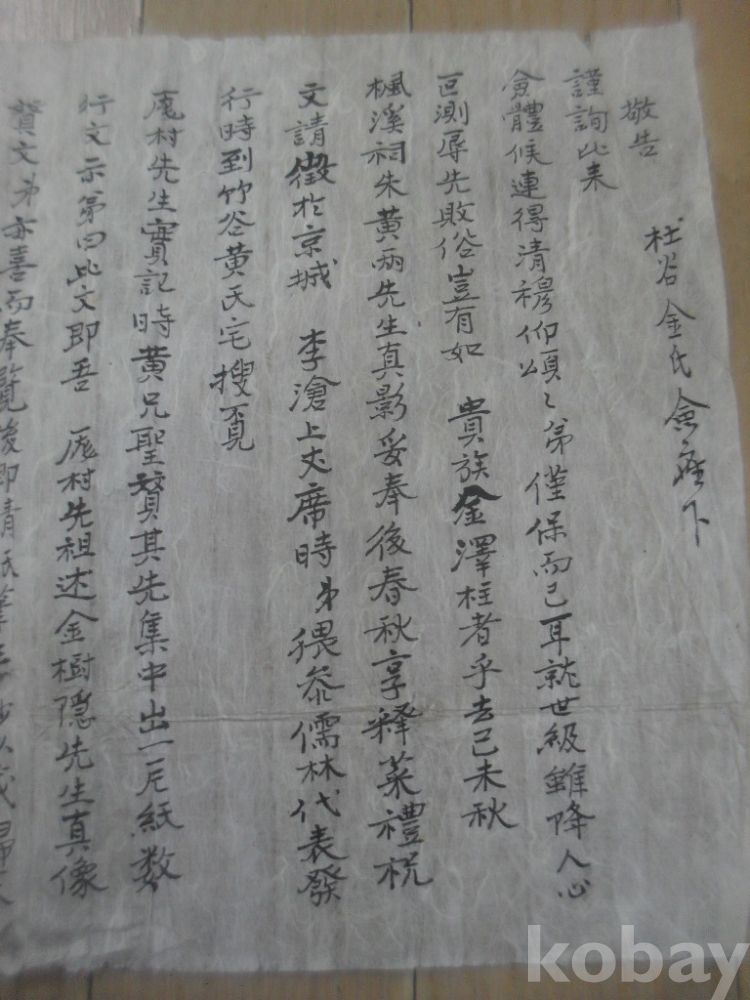 敬告
杜谷 金氏 僉座下
謹詢比来
僉體候連得清穆仰頌〻 弟僅保而已耳就世級雖降人心
叵測辱先敗俗豈有如 貴族金澤柱者乎去己未秋
楓溪祠朱黃兩先生真影妥奉後春秋享釋菜禮祝
文請徵於京城 李滄上丈席時弟猥忝儒林代表發
行時到竹谷黃氏宅搜覓
厖村先生實記時黃兄聖贊其先集中出一片紙数
行文示弟曰此文即吾 厖村先祖述金樹隱先生真像
贊文弟亦喜而奉覽後即請
kobay